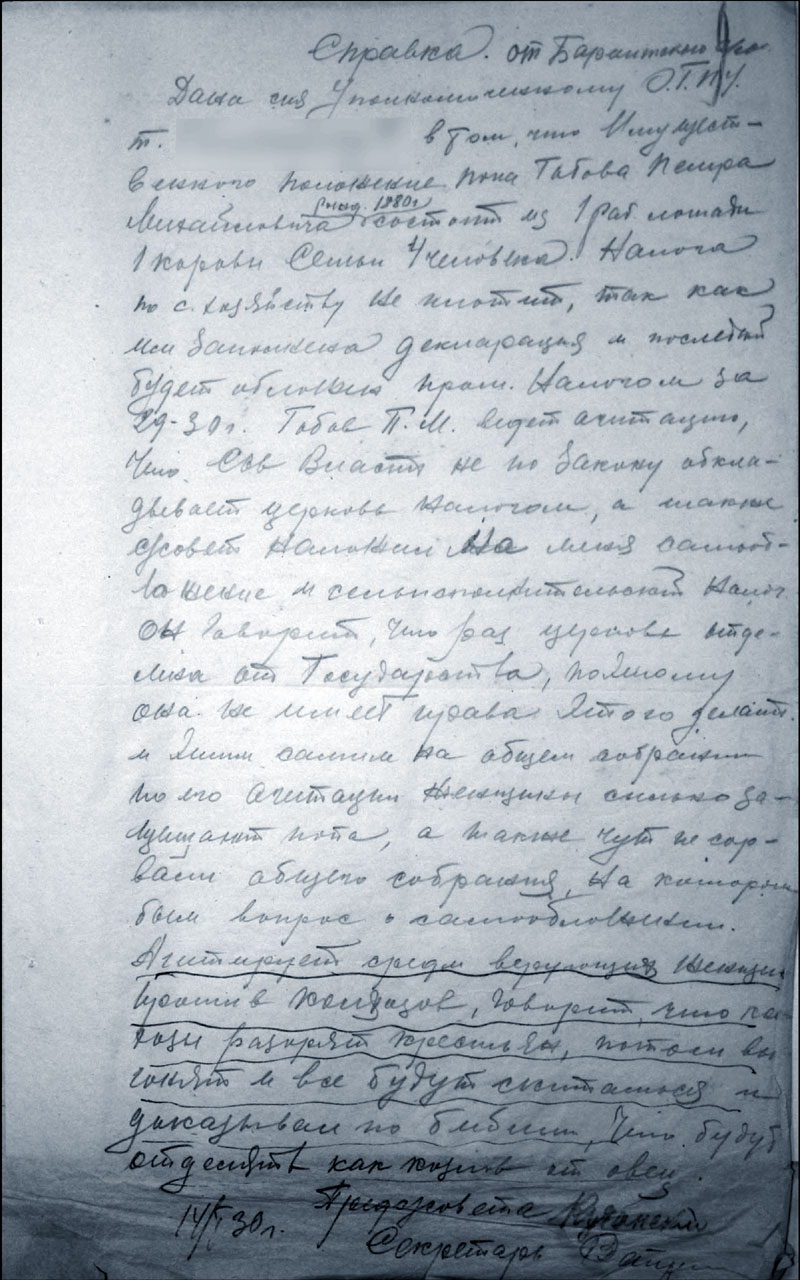 Справка. от Бараитского с/со
Дана сия Уполномоченному О.Г.П.У.
т. в том, что Имущест-
венного положение попа Тобова Петра
рожд. 1880 г
Михайловича состоит из 1 раб лошади
1 корови Семьи 4 человека. Налога
по с. хозяйству не плотит, так как
им заполнена декларация и последний
будет обложен пром. Налогом за
29-30 г. Тобов П. М. ведет агитацию,
Что Сов Власть не по Закону обкла-
дывает церковь налогом, а также
с/совет наложил На меня самооб-
ложение и сельисполнительский Налог
Он говорит, что раз церковь отде-
лена от Государства, поэтому
она не имеет права этого делать.
и этим самим на общем собрании
по его агитации женщины сильно за-
щищают попа, а также чут не сор-
вали общего собрания, на котором
был вопрос о самообложении.
Агитирует среди верующих женщин
против колхозов, говорит, что кол-
хозы разорят крестьян, потом вы
гонят и все будут скитаться и
доказывал по библии, Что будут
отделять как козлов от овец.
Предсовета
14/I 30 г. Секретарь